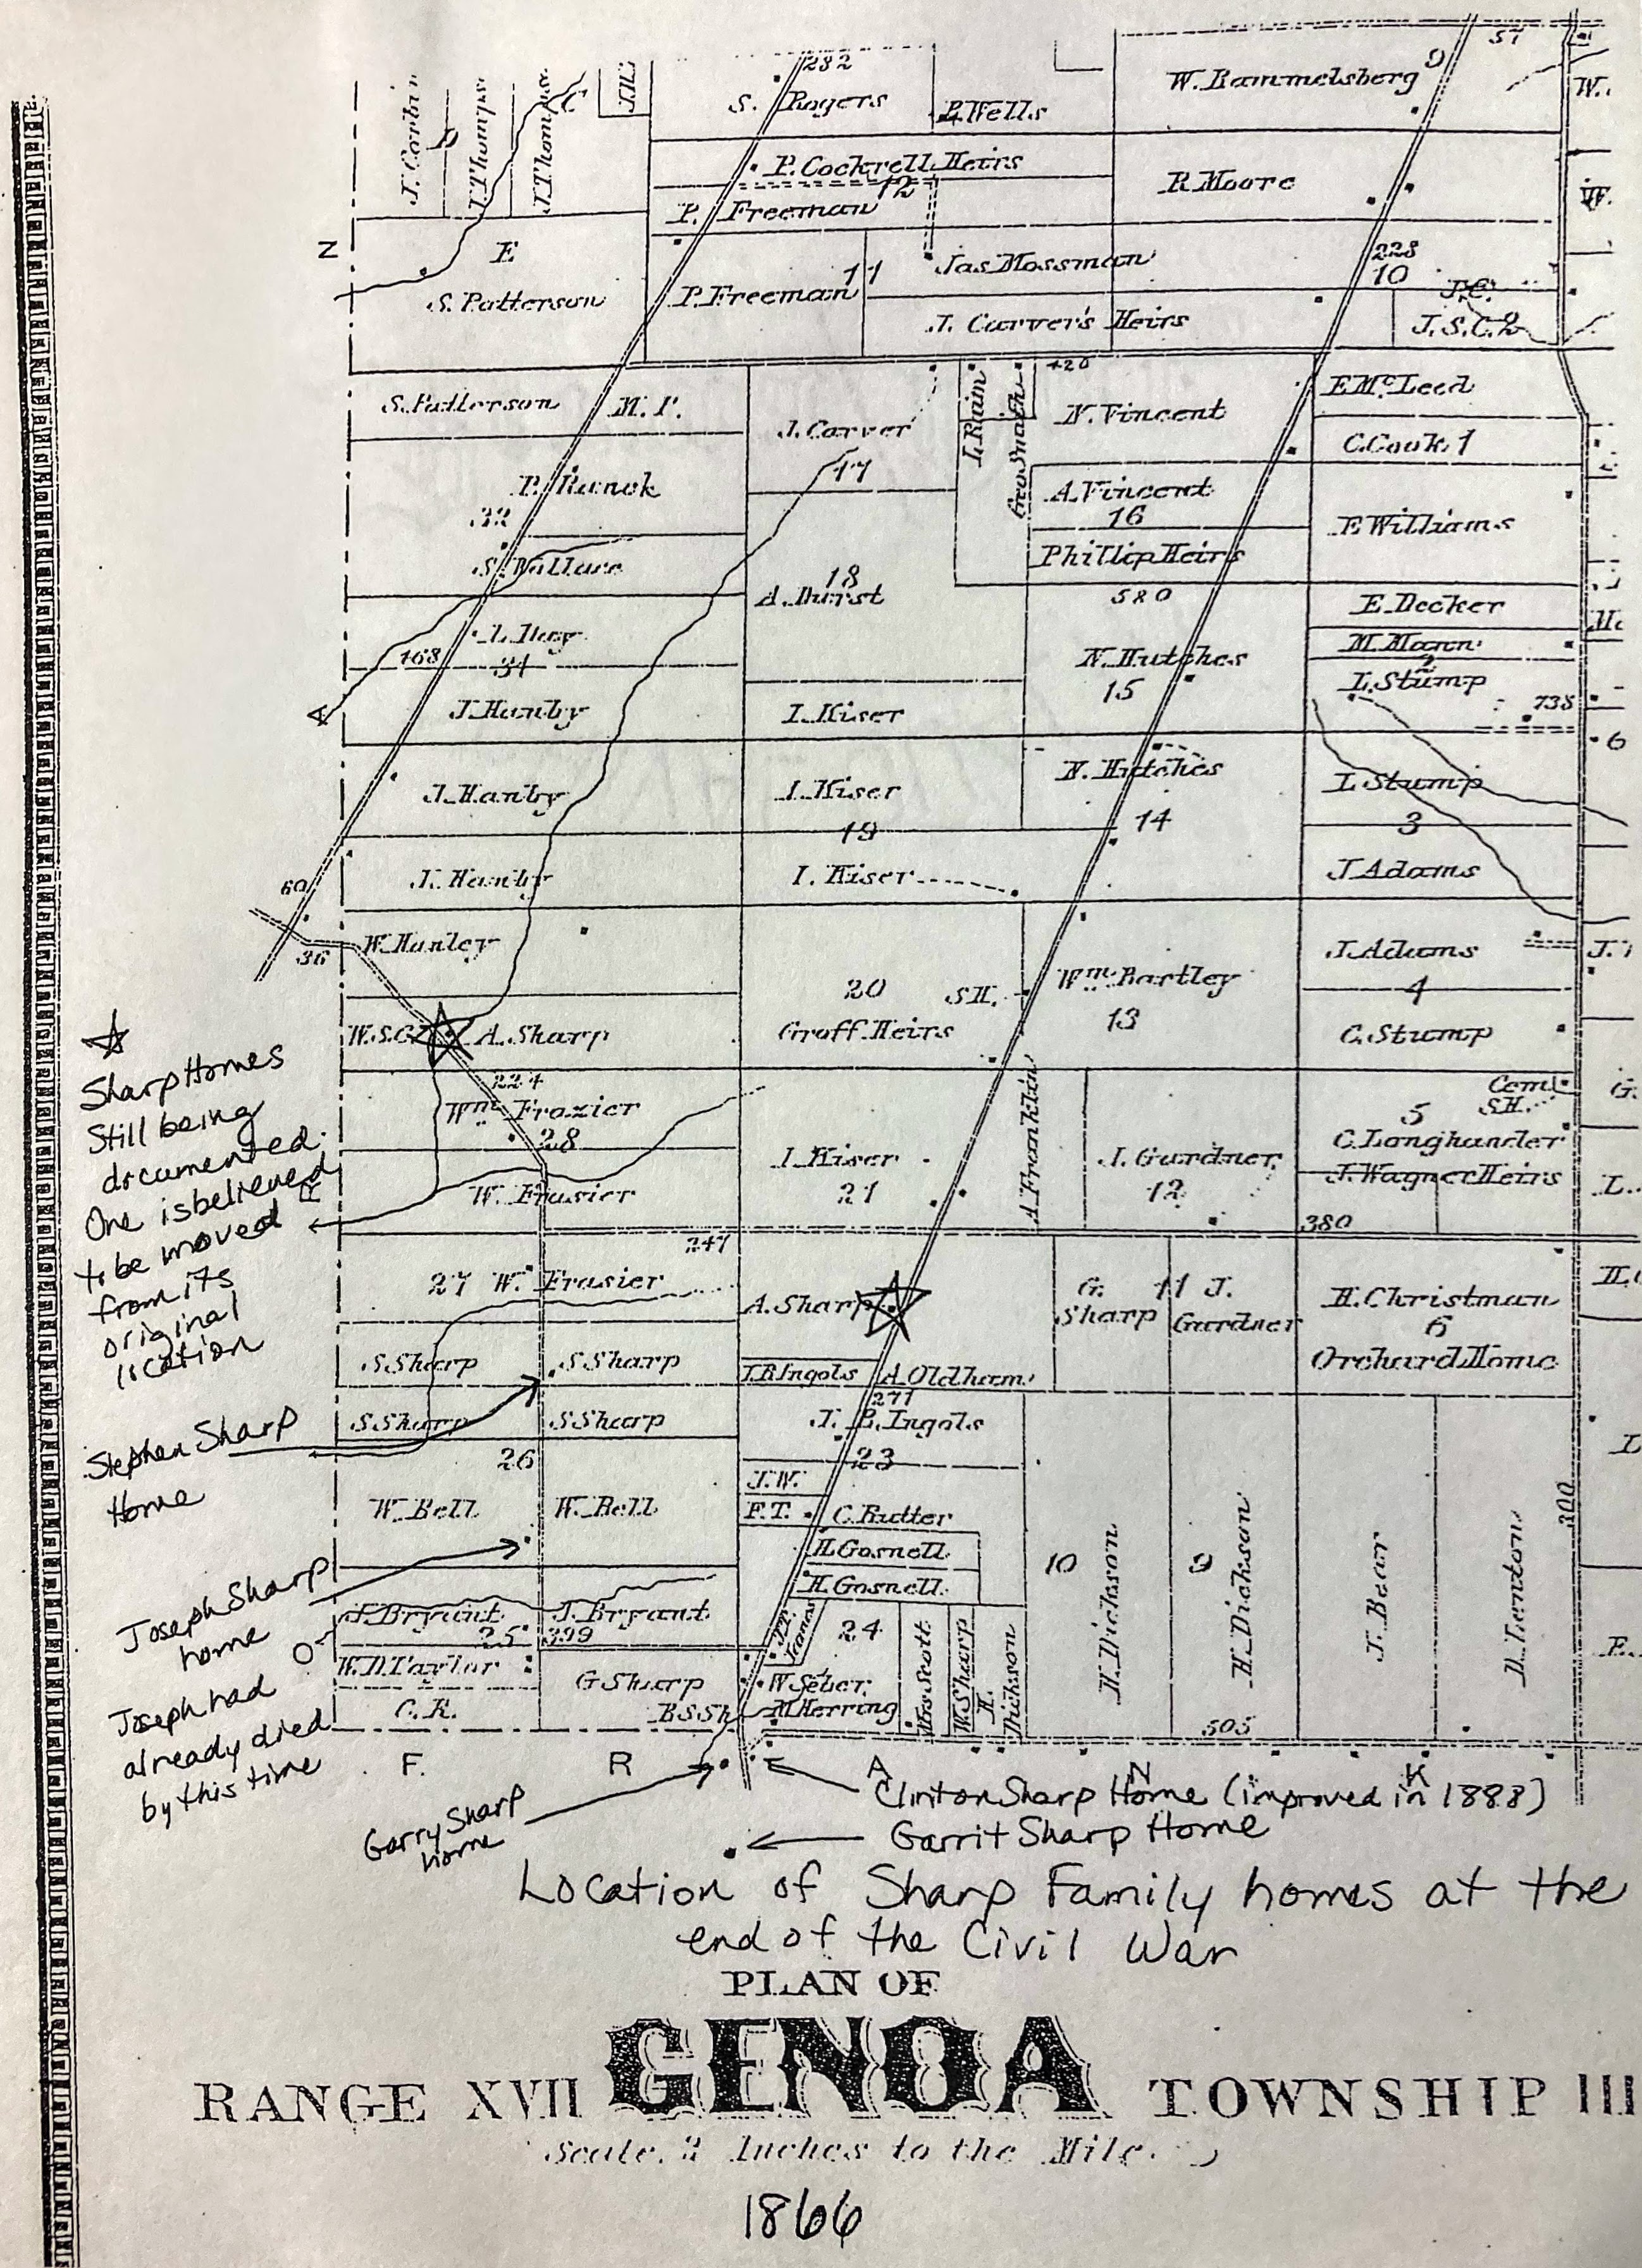 57
9
232
S. Rogers
P. Wells
W. Rammelsberg
W.
J. Corbin
D
J. Thomps
C
J. Thomps.
P. Cockrell Heirs
12
R. Moore
W.
P. Freeman
N
E
S. Patterson
P. Freeman
11
Jas Mossman
228
10
J. C.
J. Carver's Heirs
J. S. C. 2
S. Patterson
M. P.
J. Carver
17
L. Raim
Geo Smath
420
N. Vincent
E McLeed
C. Cook 1
P. Runok
32
A. Vincent
16
E Williams
S. Wallace
Phillip Heirs
18
A. Durst
580
E. Decker
168
31
N. Hutches
15
M. Mann
2
L. Stump
738
A
J. Hanby
I. Kiser
6
J. Hanby
I. Kiser
19
N. Hutches
14
L. Stump
3
60
J. Hanby
I. Kiser
J. Adams
36
W. Hanley
20
S.H.
Groff Heirs
Wm. Bartley
13
J. Adams
4
J.
W.S.G.
A. Sharp
C. Stump
Sharp Homes
Still being
documented.
One is believed
to be moved
from its
original
location
224
Wm Frazier
28
W. Frasier
R
I. Kiser
21
A. Franklin
J. Gardner
12
Cem.
S.H.
5
C. Longhander
J. Wagner Heirs
G.
L.
247
380
27 W. Frasier
A. Sharp
G.
Sharp
11 J.
Gardner
H. Christman
6
Orchard Home
S Sharp
S Sharp
J. B Ingols
A. Oldham
271
S Sharp
S Sharp
J. B. Ingols
23
L
Stephen Sharp
Home
26
W. Bell
W. Bell
J. W.
F. T.
C. Rutter
H. Gosnell
H. Gosnell
10
H. Dickson
9
H. Dickson
J. Bear
D. Lenton
300
Joseph Sharp
home
O
J. Bryant
J. Bryant
25
399
24
Mrs Scott
W. Sharp
H.
Dickson
W. D Taylor
C. K.
G Sharp
B.S Sh
W Seber
M Herring
505
Joseph had
already died
by this time
F. R A N K
Garry Sharp
home
Clinton Sharp Home (improved in 1888)
Garrit Sharp Home
Location of Sharp Family homes at the
end of the Civil War
PLAN OF
GENOA
RANGE XVII TOWNSHIP III
Scale. 2 Inches to the Mile.
1866